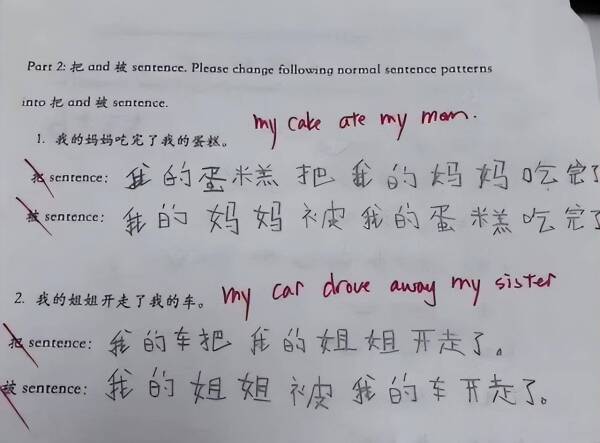 Part 2: 把 and 被 sentence. Please change following normal sentence patterns
into 把 and 被 sentence.
my cake ate my mom.
1. 我的妈妈吃完了我的蛋糕。
把 sentence: 我的蛋糕把我的妈妈吃完了
被 sentence: 我的妈妈被我的蛋糕吃完了
2. 我的姐姐开走了我的车。 my car drove away my sister
把 sentence: 我的车把我的姐姐开走了。
被 sentence: 我的姐姐被我的车开走了。